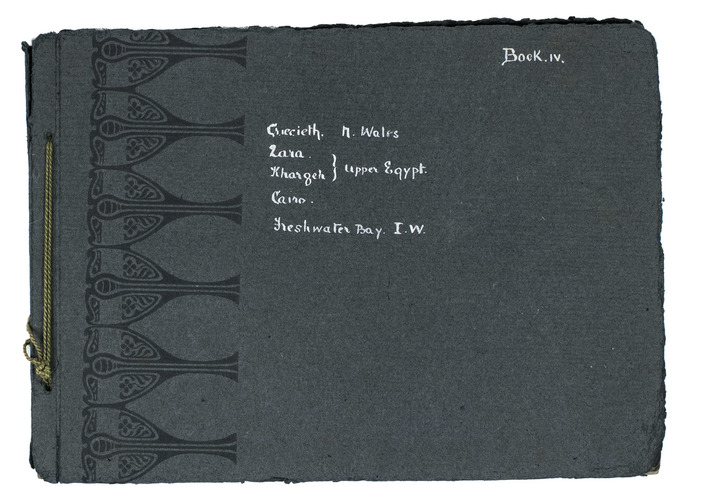 Book. IV.
Criccieth. N. Wales
Zara.
Khargeh } Upper Egypt.
Cairo.
Freshwater Bay. I.W.